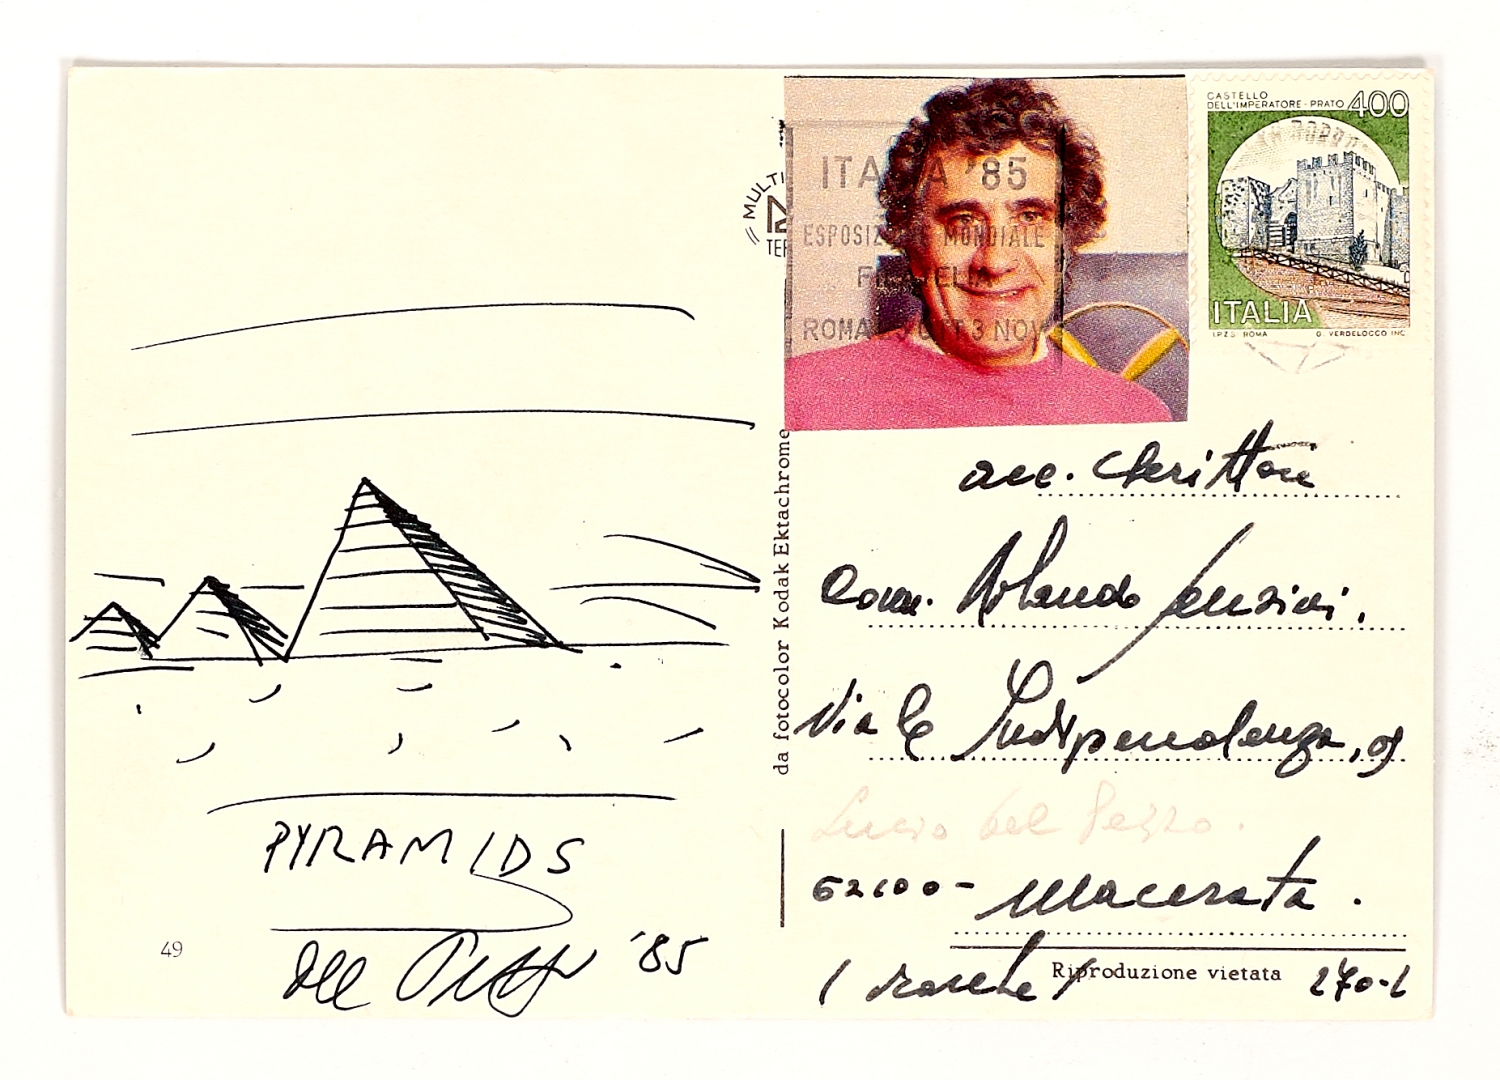 PYRAMIDS
Del Pezzo '85
49
MULTI
TER
ITALIA '85
ESPOSIZIONE MONDIALE
FILATELIA
ROMA OTT 3 NOV
CASTELLO
DELL'IMPERATORE - PRATO 400
ITALIA
I.P.Z.S. ROMA G. VERDELOCCO INC.
da fotocolor Kodak Ektachrome
Comm. Orlando
Viale Indipendenza,
Lucio Del Pezzo.
62100 - Macerata.
(Marche)
Riproduzione vietata
270-L